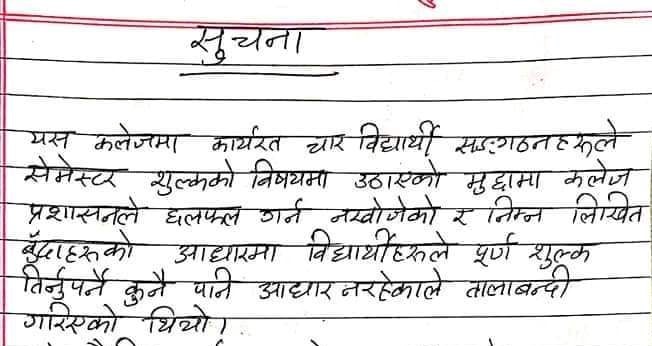 सुचना
यस कलेजमा कार्यरत चार विद्यार्थी सङगठनहरुले
सेमेस्टर शुल्कको विषयमा उठाएको मुद्दामा कलेज
प्रशासनले छलफल गर्न नखोजेको र निम्न लिखित
बुँदाहरुको आधारमा विद्यार्थीहरुले पूर्ण शुल्क
तिर्नुपर्ने कुनै पनि आधार नरहेकाले तालाबन्दी
गरिएको थियो।